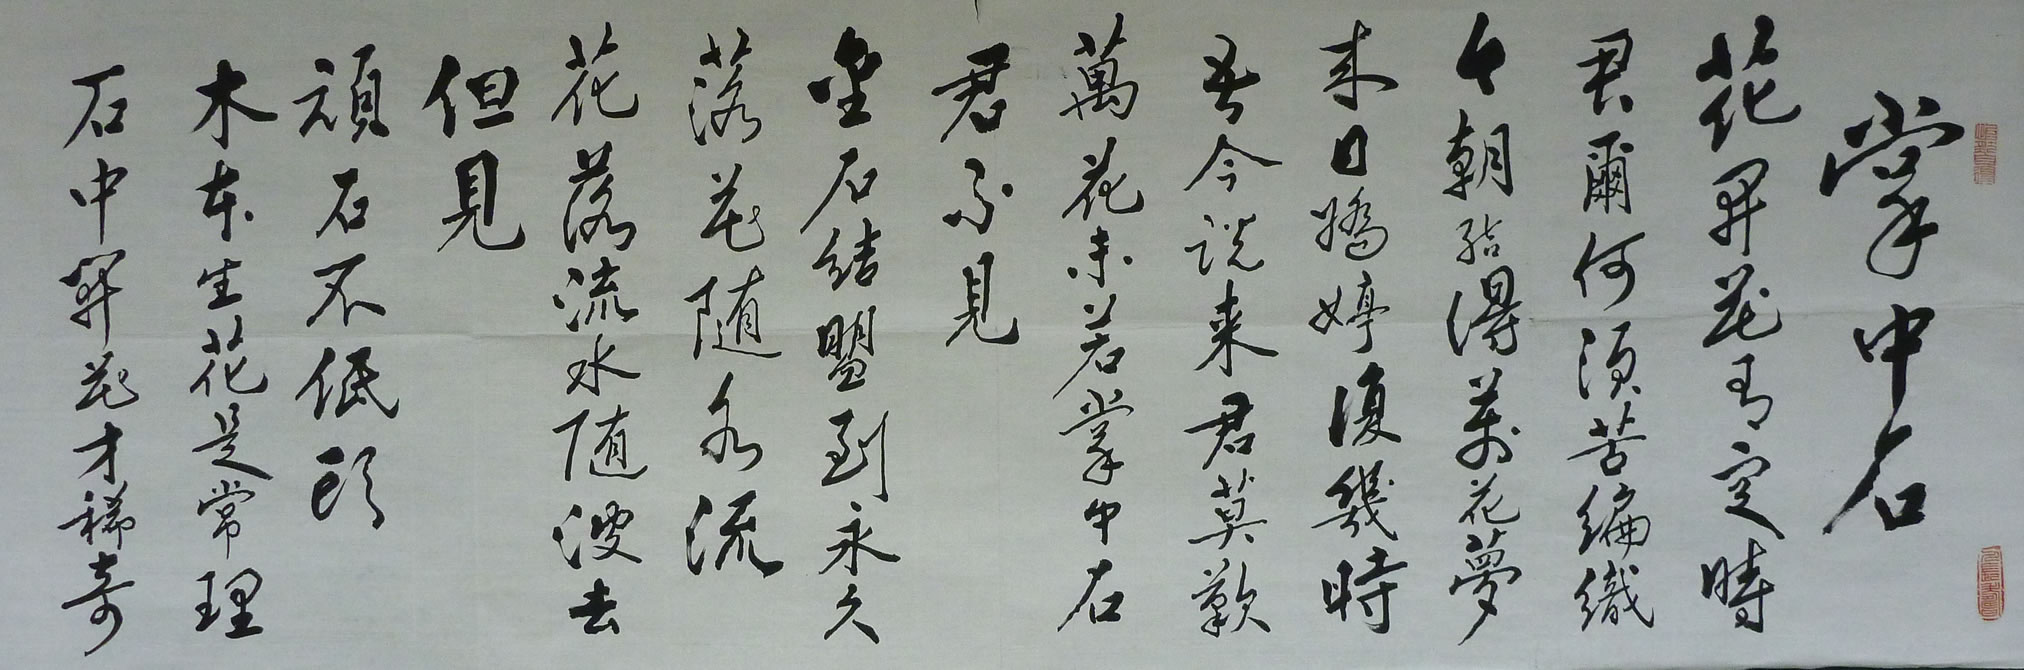 掌中石
花開花有定時
君爾何須苦編織
今朝結得萬花夢
來日嬌婷復幾時
吾今說来君莫歎
萬花未若掌中石
君不見
金石結盟到永久
落花随水流
花落流水随波去
但見
頑石不低頭
木本生花是常理
石中開花才稀奇